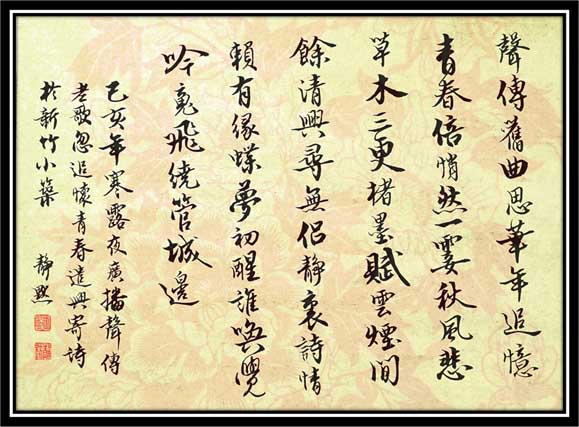 聲傳舊曲思華年追憶
青春倍悄然一霎秋風悲
草木三更楮墨賦雲煙閒
餘清興尋無侶靜裏詩情
賴有緣蝶夢初醒誰喚覺
吟飛繞管城邊
己亥年寒露夜廣播聲傳
老歌忽追懷青春遣興寄詩
於新竹小築
靜默